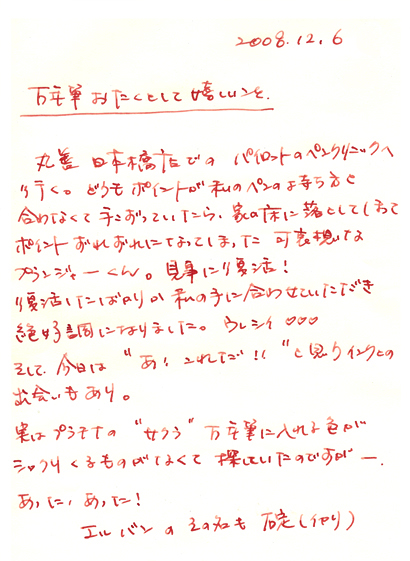 2008.12.6
万年筆おたくとして嬉しいこと.
丸善 日本橋店での パイロットのペンクリニックへ
行く。どうも ポイントが私のペンの持ち方と
合わなくて手こずっていたら、家の床に落としてしまって
ポイントおれおれになってしまった 可哀想な
プランジャーくん。見事に復活!
復活したばかりか 私の手に合わせていただき
絶好調になりました。ウレシイ♡♡♡
そして 今日は "あ! これだ!!" と思うインクとの
出会いもあり。
実はプラチナの "サクラ" 万年筆に入れる色が
シックリくるものがなくて 探していたのですがー.
あった, あった!
エルバン の その名も